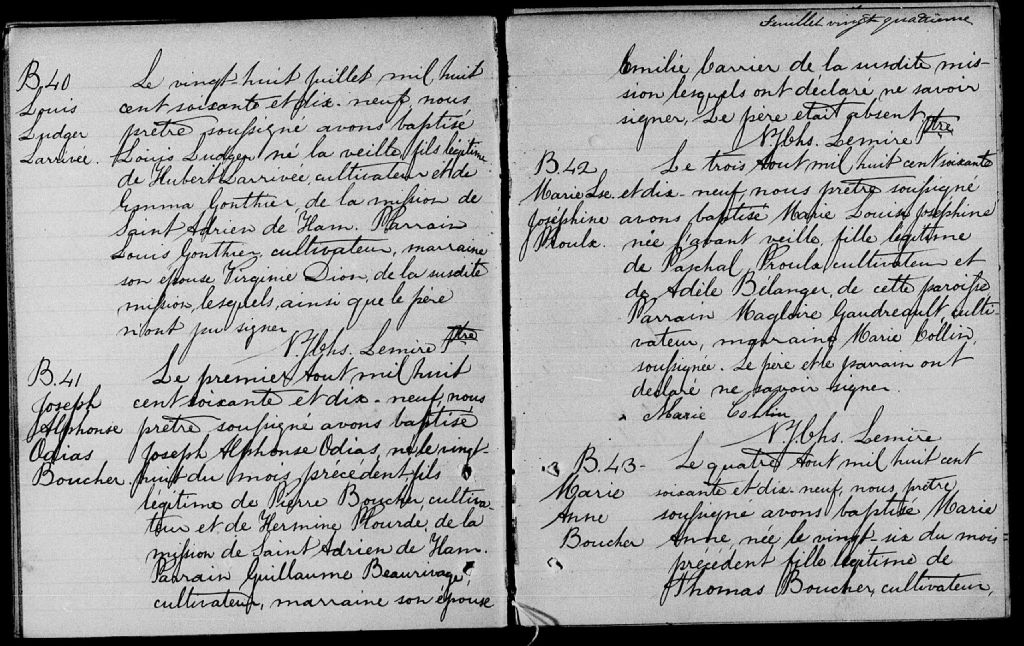 B.40
Louis
Ludger
Larrivée.
Le vingt-huit juillet mil huit
cent soixante et dix-neuf, nous
prêtre soussigné avons baptisé
Louis Ludger, né la veille, fils légitime
de Hubert Larrivée, cultivateur et de
Emma Gonthier de la mission de
Saint Adrien de Ham. Parrain
Louis Gonthier, cultivateur, marraine
son épouse Virginie Dion, de la susdite
mission, lesquels, ainsi que le père
n'ont pu signer.
Lemire Ptre
B.41
Joseph
Alphonse
Odias
Boucher
Le premier Aout mil huit
cent soixante et dix-neuf, nous
prêtre soussigné avons baptisé
Joseph Alphonse Odias, né le vingt-
huit du mois précédent, fils
légitime de Pierre Boucher, cultiva-
teur et de Hermine Plourde, de la
mission de Saint Adrien de Ham.
Parrain Guillaume Beaurivage,
cultivateur, marraine son épouse
Feuillet vingt quatrième
Emilie Carrier de la susdite mis-
sion lesquels ont déclaré ne savoir
signer. Le père était absent
Lemire Ptre
B.42
Marie Lse
Josephine
Proulx.
Le trois Aout mil huit cent soixante
et dix-neuf, nous prêtre soussigné
avons baptisé Marie Louise Joséphine
née l'avant veille, fille légitime
de Paschal Proulx, cultivateur et
de Adèle Bélanger, de cette paroisse
Parrain Magloire Gaudreault culti-
vateur, marraine Marie Collin,
soussignée. Le père et le parrain ont
declaré ne savoir signer
Marie Collin
Lemire
B.43-
Marie
Anne
Boucher
Le quatre Aout mil huit cent
soixante et dix-neuf, nous, prêtre
soussigné avons baptisé Marie
Anne, née le vingt-six du mois
précédent fille légitime de
Thomas Boucher, cultivateur,